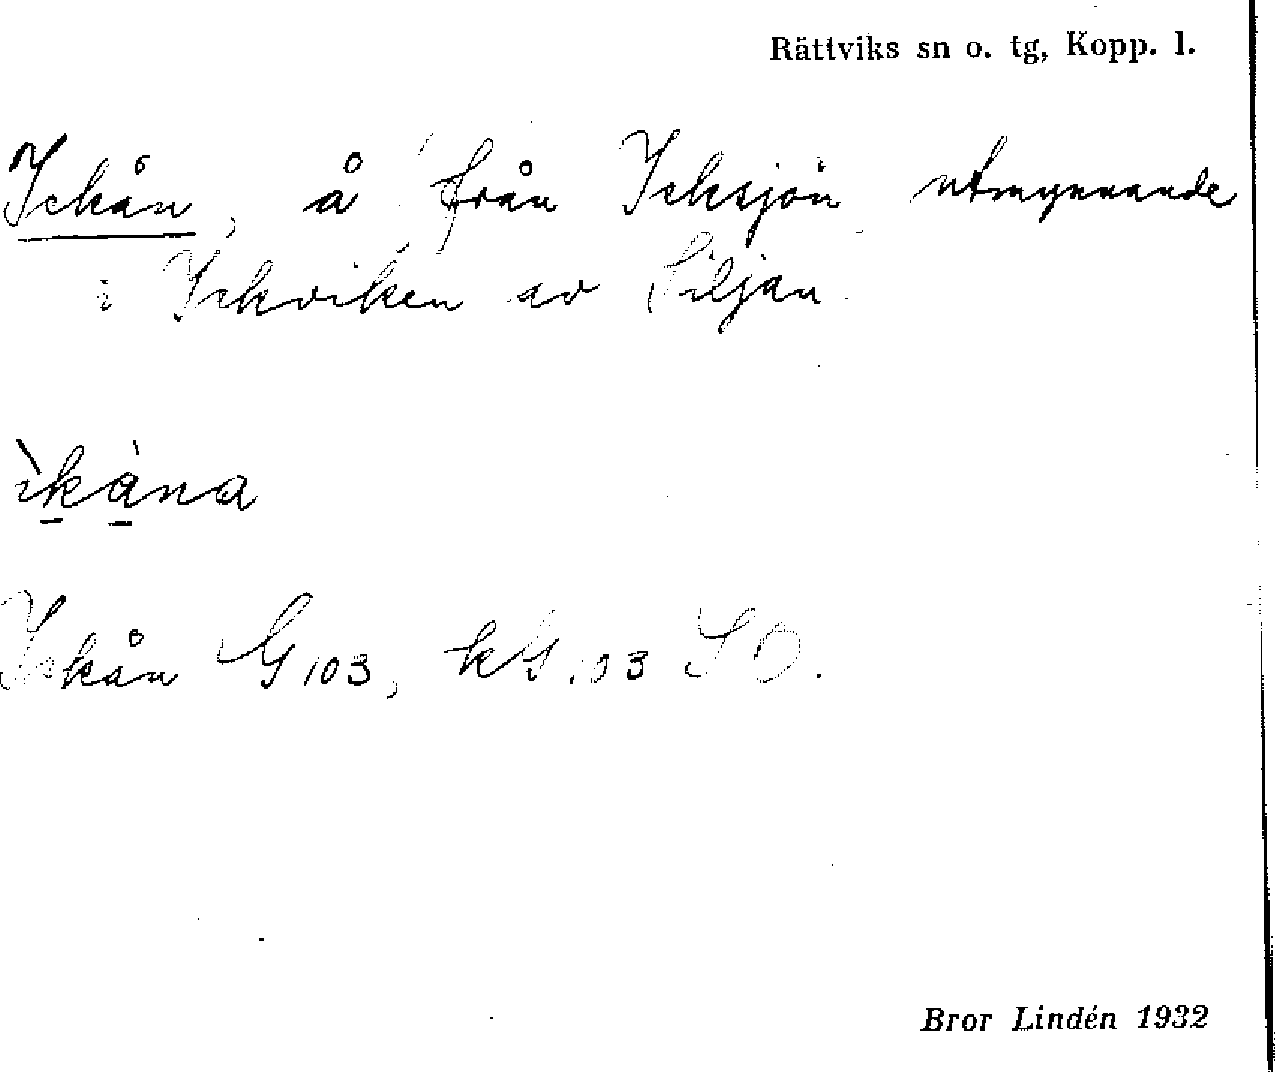 Rättviks sn o. tg, Kopp. l.
Ickån, å från Icksjön utmynnande
i Ickviken av Siljan.
ìkȧna
Ickån G 103, kG 103 SO.
Bror Lindén 1932